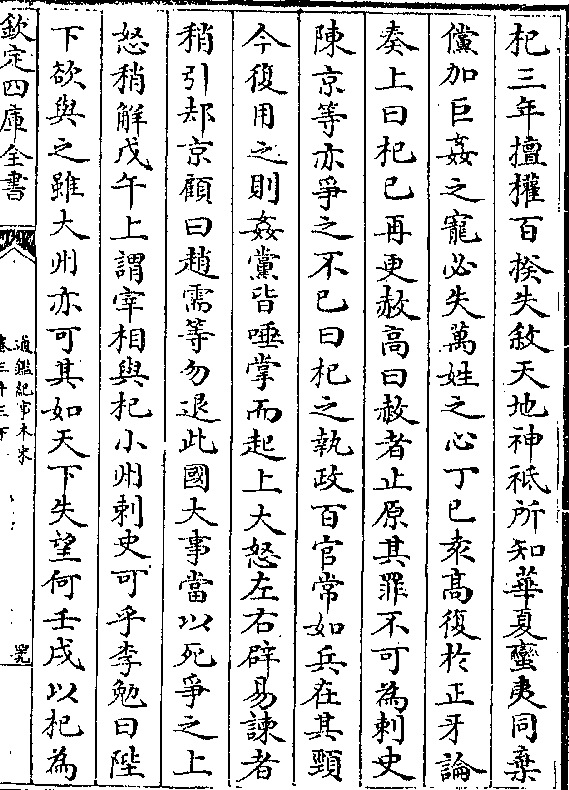 杞三年擅權百揆失敘天地神祇所知華夏蠻夷同棄
儻加巨姦之寵必失萬姓之心丁巳袁髙復於正牙論
奏上曰杞已再更赦高曰赦者止原其罪不可為刺史
陳京等亦爭之不已曰杞之執政百官常如兵在其頸
今復用之則姦黨皆唾掌而起上大怒左右辟易諫者
稍引却京顧曰趙需等勿退此國大事當以死爭之上
怒稍解戊午上謂宰相與杞小州刺史可乎李勉曰陛
下欲與之雖大州亦可其如天下失望何壬戌以杞為
欽定四庫全書
通鑑紀事本末
卷三十三下